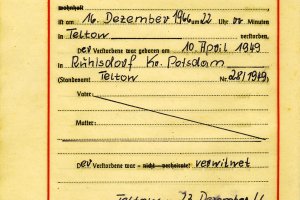 wohnhaft
ist am 16. Dezember 1966 22 Uhr Minuten
in Teltow verstorben.
Der Verstorbene war geboren am 10. April 1949
in Ruhlsdorf Kr. Potsdam
(Standesamt Teltow Nr. 28/1949)
Vater:
Mutter:
Der Verstorbene war – nicht – verheiratet verwitwet
Teltow Dezember